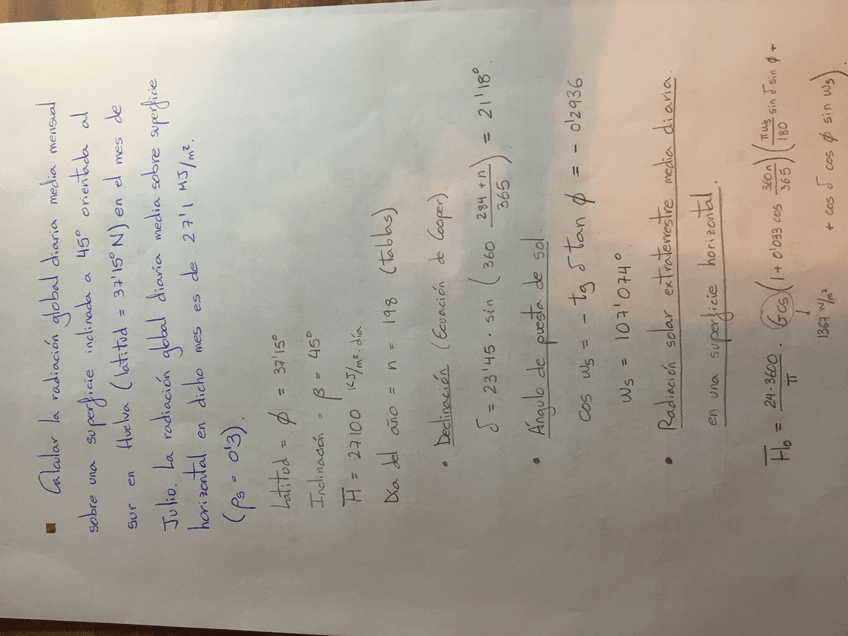 ▪ Calcular la radiación global diaria media mensual
sobre una superficie inclinada a 45° orientada al
sur en Huelva (latitud = 37'15° N) en el mes de
Julio. La radiación global diaria media sobre superficie
horizontal en dicho mes es de 27'1 MJ/m².
(ρs = 0'3).
Latitud = ϕ = 37'15°
Inclinación = β = 45°
H̅ = 27100 KJ/m².día
Día del año = n = 198 (tablas)
• Declinación (Ecuación de Cooper)
δ = 23'45 · sin (360 (284 + n)/365) = 21'18°
• Ángulo de puesta de sol.
cos ws = - tg δ tan ϕ = - 0'2936
ws = 107'074°
• Radiación solar extraterrestre media diaria
en una superficie horizontal.
H̅₀ = (24·3600)/π · Gcs (1 + 0'033 cos (360n)/365) ((π ws)/180 sin δ sin ϕ +
+ cos δ cos ϕ sin ws).
1367 W/m²